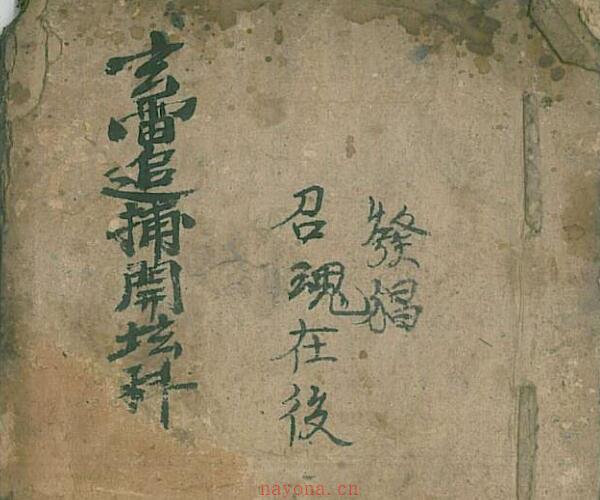 發猖
召魂在後
玄雷追捕開坛科
nayona.cn